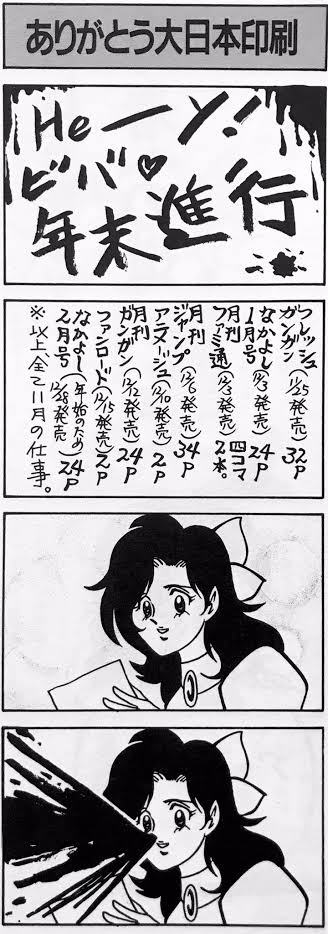 ありがとう大日本印刷
Heーイ!
ビバ♡
年末進行
フレッシュ
ガンガン(11/25発売)32P
なかよし
1月号(12/3発売)24P
月刊
ファミ通(12/3発売)四コマ2本。
月刊
ジャンプ(12/6発売)34P
アニメージュ(12/10発売)2P
月刊
ガンガン(12/12発売)24P
ファンロード(12/15発売)2P
なかよし(年始のため)
2月号(12/28発売)24P
※以上、全て11月の仕事。